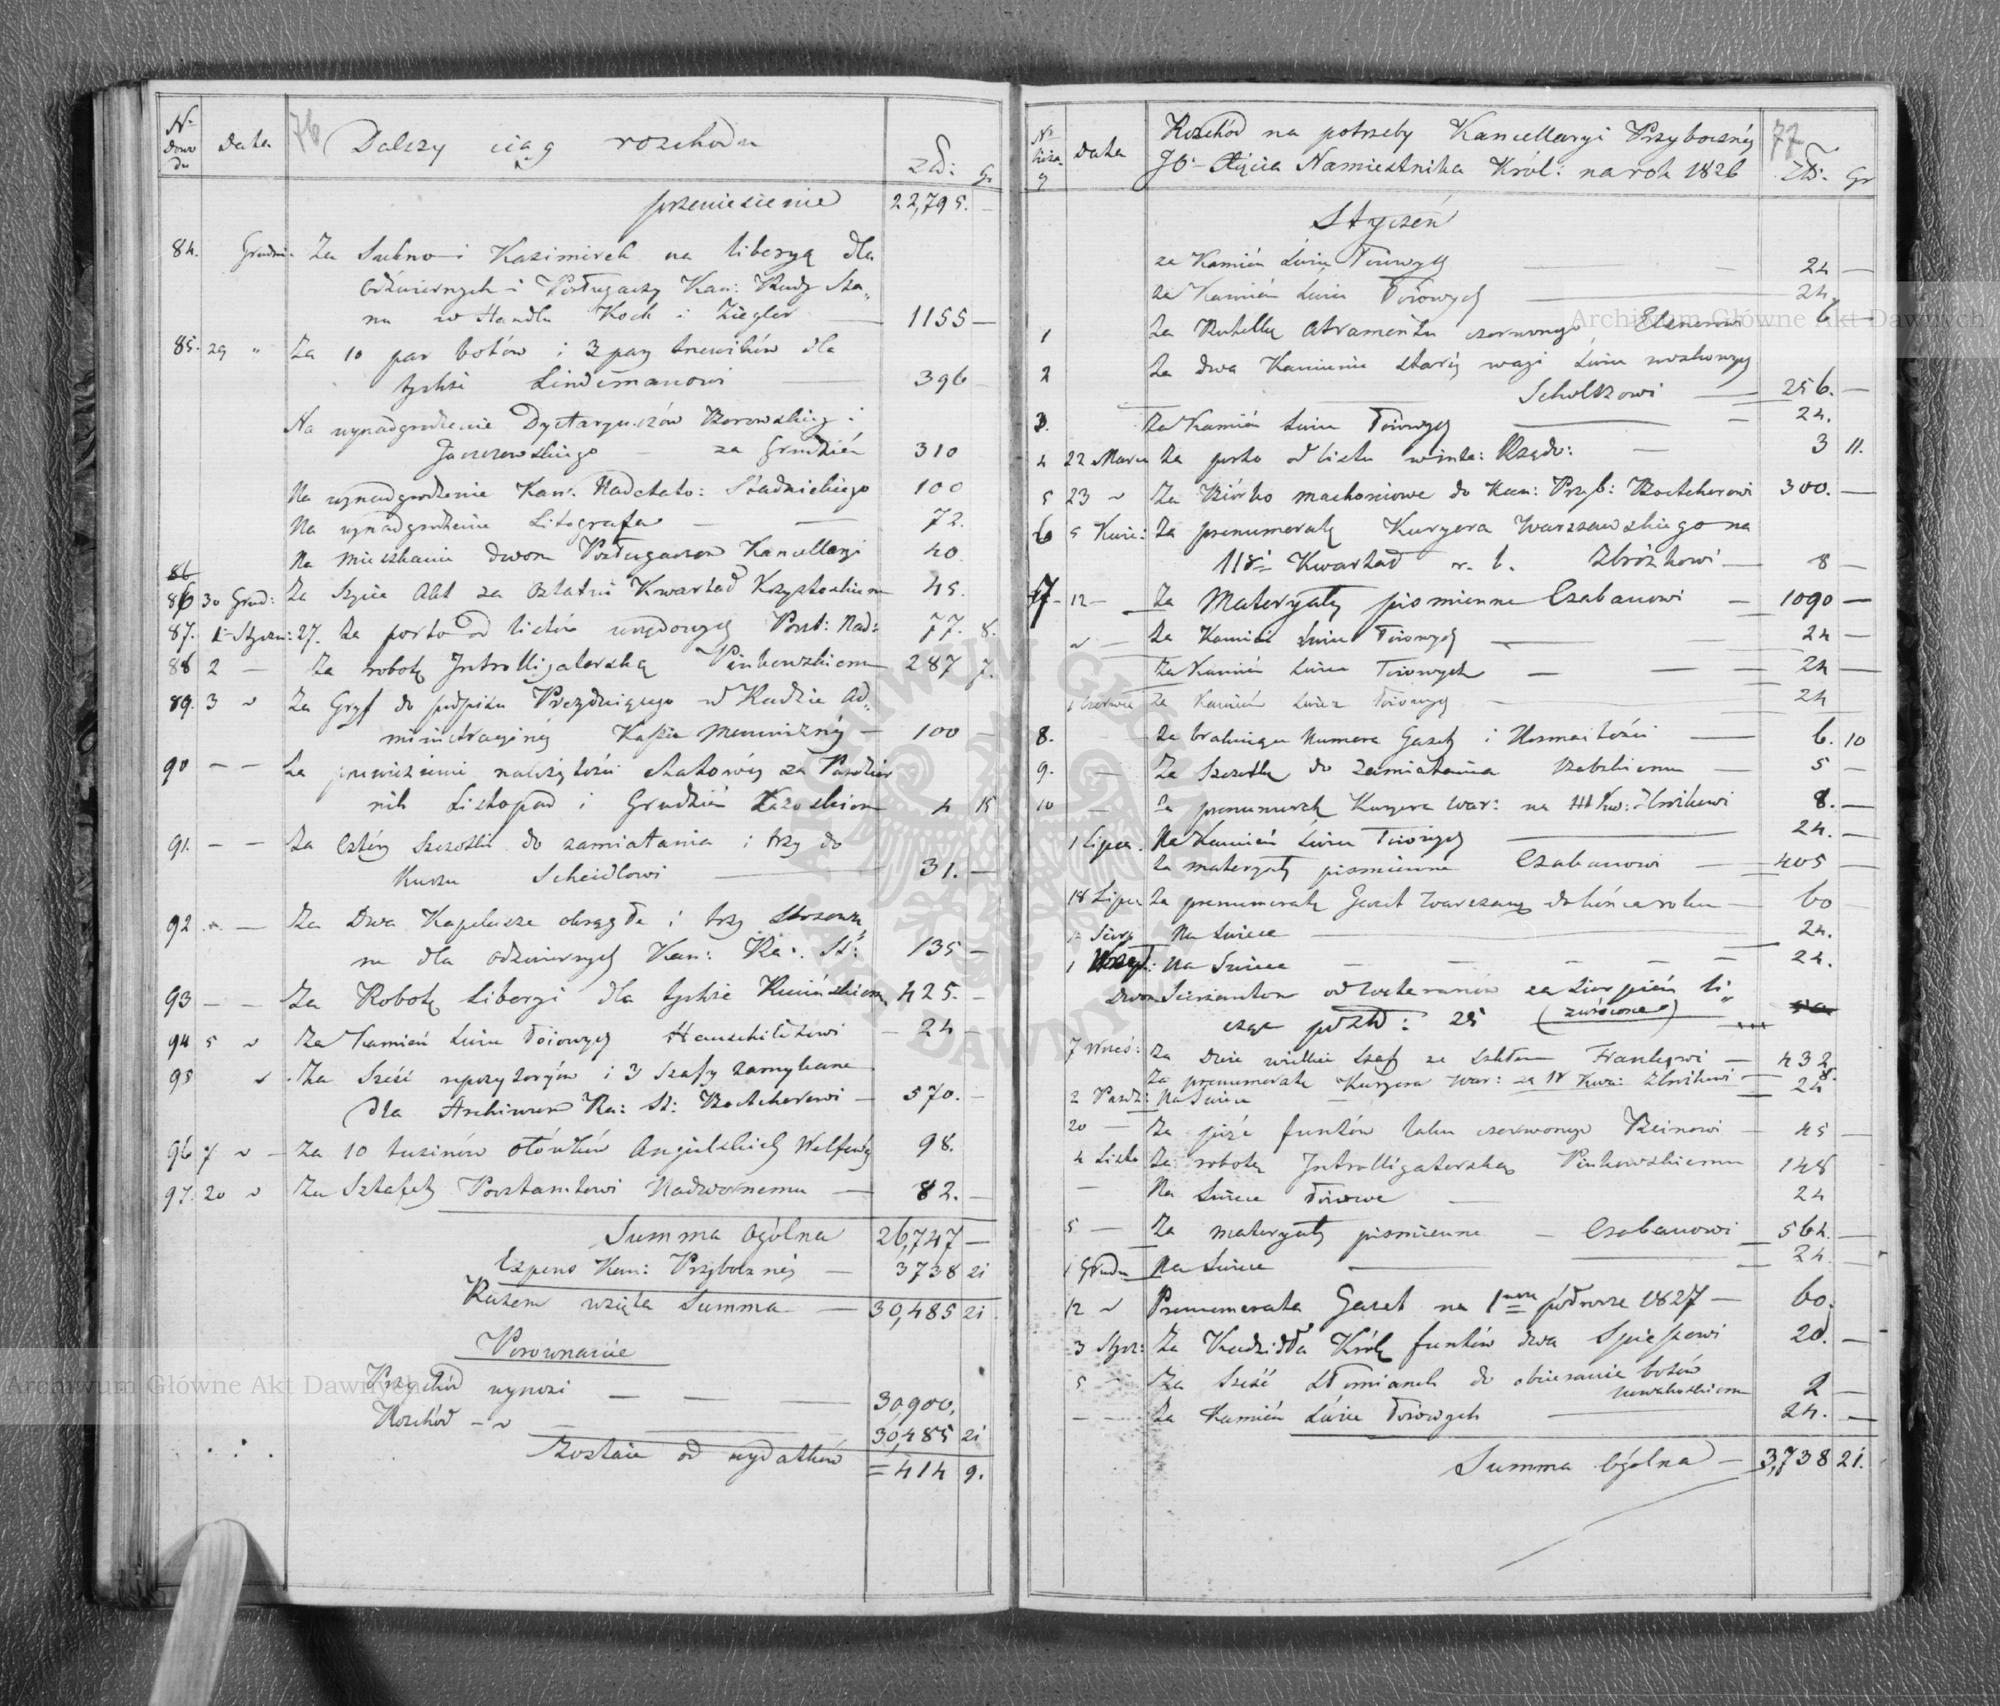 Nr dowodu
Data
76
Dalszy ciąg rozchodu
Zł: gr
przeniesienie 22,795. –
84. Grudnia Za Sukno i Kazimirek na liberyą dla
odźwiernych i Posługaczy Kan: Rady Sta„
nu w Handlu Koch i Ziegler — 1155 —
85. 29 „ Za 10 par botów i 3 pary trzewików dla
tychże Lindemanowi — 396 –
Na wynadgrodzenie Dyetaryuszów Borowskiego i
Jaczewskiego – za Grudzień 310
Na wynadgrodzenie Kan: Nadetato: Stadnickiego 100
Na wynadgrodzenie Litografa — — 72.
Na mieszkanie dwom Posługaczom Kancellaryi 40.
86
86 30 Grud: Za Szycie Akt za ostatni Kwartał 45.
87. 1 Stycz: 27. Za porto od listów urzędowych Poczt: Nad: 77. 8.
88 2 — Za robotę Introlligatorską Pinkowskiemu 287 7.
89. 3 „ Za Gryf do podpisu Prezydującego w Radzie Ad„
ministracyjnéj Kassie Mennicznéj — 100 –
90 – – Za przewiezienie należytości etatowéj za Paździer
nik Listopad i Grudzień 4 15
91. – – Za Cztéry Szczotki do zamiatania i trzy do
Kurzu Scheidlowi — 31. —
92 – — Za Dwa Kapelusze okrągłe i trzy stosowa
ne dla odźwiernych Kan: Ra: St: 135 —
93 — — Za Robotę Liberyi dla tychże 425. –
94 5 „ Za Kamień Świec łoiowych Hauschildtowi – 24 –
95 „ Za Sześć repozytoryów i 3 Szafy zamykane
dla Archiwum Ra: St: Boetcherowi — 570. –
96 7 „ — Za 10 tuzinów ołówków Angielskich 98.
97. 20 „ Za Sztafety Pocztamtowi Nadwornemu — 82. —
Summa Ogólna 26,747 —
Expens Kan: Przybocznéj — 3738 21
Razem wzięta Summa — 30,485 21
Porównanie
Przychód wynosi — — — 30900.
Rozchód – „ — 30,485 21
Zostaie od wydatków = 414 9.
Nr
Data
Rozchód na potrzeby Kancellaryi Przybocznéj
JO– Xięcia Namiestnika Król: na rok 1826
77
Złt. Gr
Styczeń
za Kamień Świec łoiowych — — 24 —
za Kamień Świec łoiowych — 24.
1 Za Butelkę atramentu czerwonego Elsnerowi 6 —
2 Za dwa Kamienie staréj wagi Świec woskowych
Scholtzowi — 256. —
3. Za Kamień Świec łoiowych — 24.
4 22 Marca Za porto od listu — 3 11.
5 23 „ Za Biórko machoniowe do Kan: Przyb: Boetcherowi 300. —
6 5 Kwie: Za prenumeratę Kuryera Warszawskiego na
II Kwartał r. b. — 8 —
7 – 12 – Za Materyały pismienne Czabanowi — 1090 —
„ Za Kamień Świec łoiowych — 24 —
Za Kamień Świec łoiowych — 24 —
1 Czerwca Za Kamień Świec łoiowych — 24
8. Za brakujące Numera Gazety i Rozmaitości — 6. 10
9. — Za Szczotkę do Zamiatania — 5 –
10 — Za prenumeratę Kuryera War: na III Kw: 8. —
1 Lipca. Na Kamień Świec łoiowych — 24. —
Za materyały pismienne Czabanowi — 405 —
18 Lipca Za prenumeratę Gazet Warszaw: do końca roku — 60 —
1 Sierp Na Świece — 24.
1 Na Świece — — — 24.
Dwom od za Sierpień li„
cząc po Zł: 25 (zwrócone) —
7 Wrześ: Za Dwie wielkie Szafy ze Szkłem — 432
Za prenumeratę Kuryera War: za IV Kwa: — 8.
2 Paźdz: Na Świece — 24
20 — Za pięć funtów laku czerwonego — 45 —
4 Listo Za robotę Introlligatorską Pinkowskiemu 148
— Na Świece łoiowe — 24
5 — Za materyały pismienne — Czabanowi 564. —
1 Grudn Na Świece — 24.
12 „ Prenumerata Gazet na 1wsze półrocze 1827 — 60.
3 Stycz: Za Kadzidła Król funtów dwa Spiessowi 20. —
5 – Za Sześć Słomianek do obcierania botów
2 —
— – Za Kamień Świec łoiowych — 24. —
Summa Ogólna — 3,738 21.
Archiwum Główne Akt Dawnych
Archiwum Główne Akt Dawnych
ARCHIWUM GŁÓWNE AKT DAWNYCH